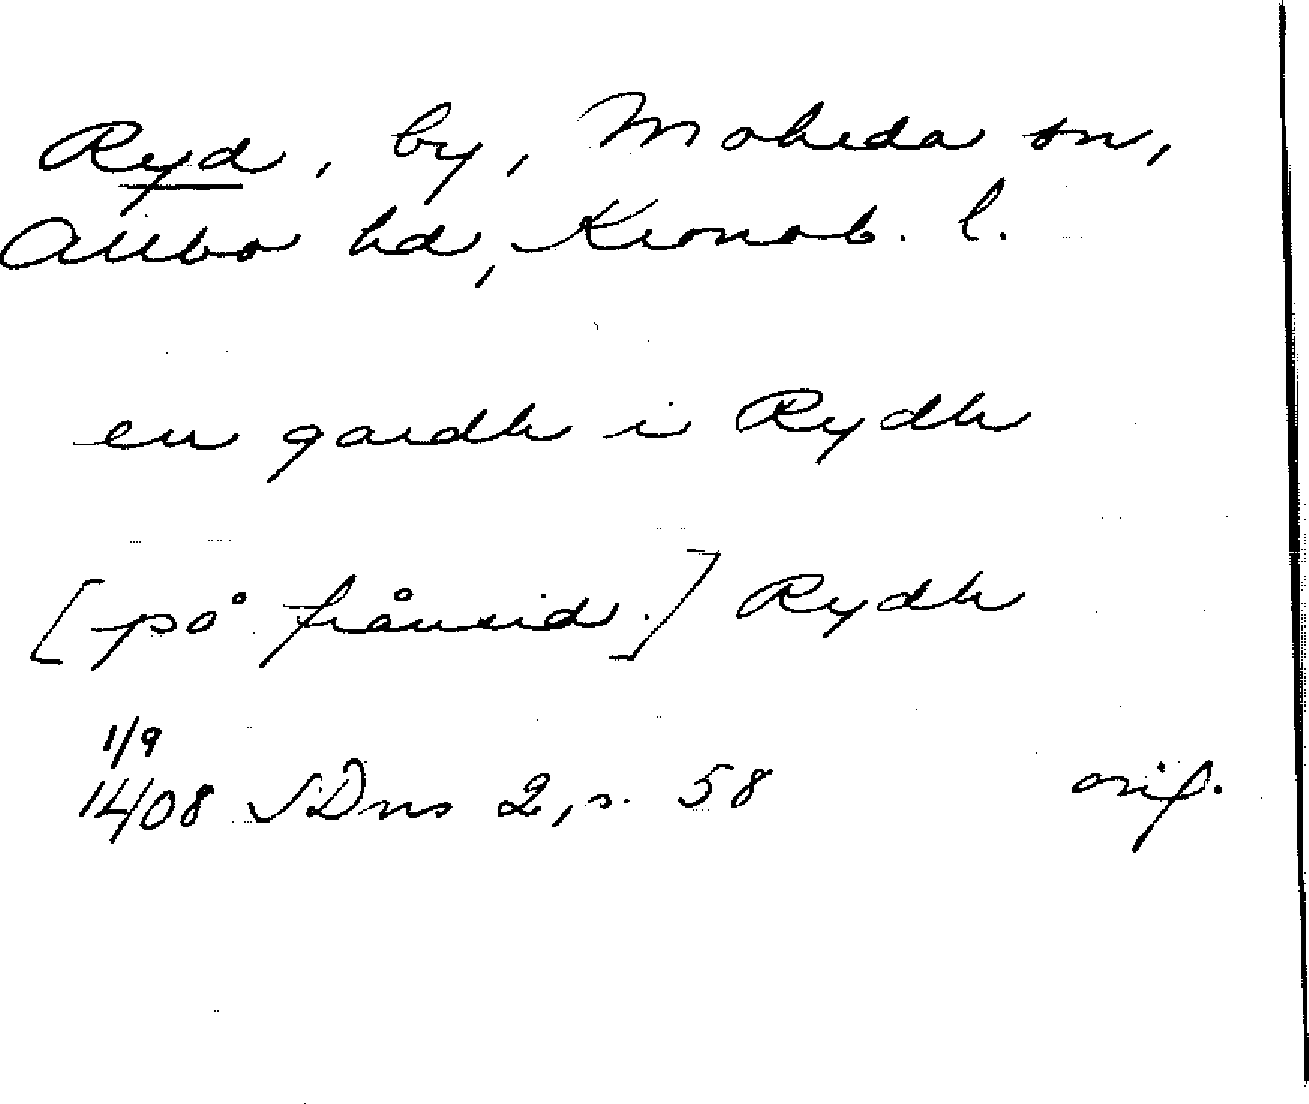 Ryd, by, Moheda sn,
Allbo hd, Kronob. l.
en gardh i Rydh
[på frånsid.] Rydh
1/9
14/08 SDns 2, s. 58 orig.